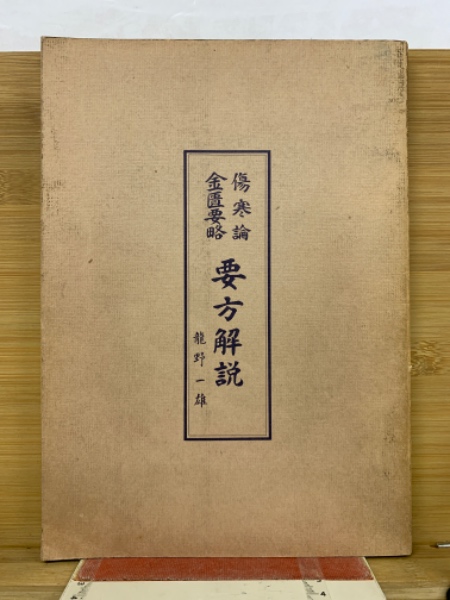 傷寒論
金匱要略
要方解説
龍野一雄